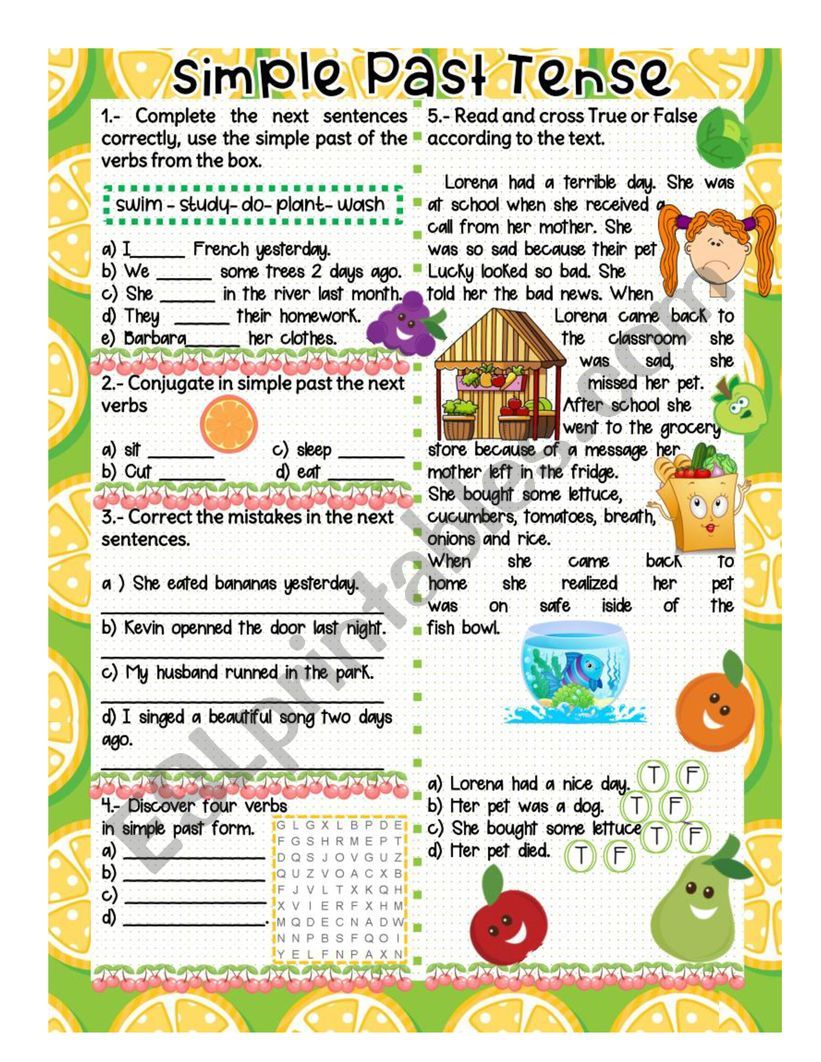 Simple Past Tense
1.- Complete the next sentences
correctly, use the simple past of the
verbs from the box.
swim - study- do- plant- wash
a) I______ French yesterday.
b) We ______ some trees 2 days ago.
c) She ______ in the river last month.
d) They ______ their homework.
e) Barbara______ her clothes.
2.- Conjugate in simple past the next
verbs
a) sit _______ c) sleep _______
b) Cut _______ d) eat _______
3.- Correct the mistakes in the next
sentences.
a ) She eated bananas yesterday.
b) Kevin openned the door last night.
c) My husband runned in the park.
d) I singed a beautiful song two days
ago.
4.- Discover four verbs
in simple past form.
a) _______________
b) _______________
c) _______________
d) _______________.
G L G X L B P D E
F G S H R M E P T
D Q S J O V G U Z
Q U Z V O A C X B
F J V L T X K Q H
X V I E R F X H M
M Q D E C N A D W
N N P B S F Q O I
Y E L F N P A X N
5.- Read and cross True or False
according to the text.
Lorena had a terrible day. She was
at school when she received a
call from her mother. She
was so sad because their pet
Lucky looked so bad. She
told her the bad news. When
Lorena came back to
the classroom she
was sad, she
missed her pet.
After school she
went to the grocery
store because of a message her
mother left in the fridge.
She bought some lettuce,
cucumbers, tomatoes, breath,
onions and rice.
When she came back to
home she realized her pet
was on safe iside of the
fish bowl.
a) Lorena had a nice day. T F
b) Her pet was a dog. T F
c) She bought some lettuce T F
d) Her pet died. T F
ESLprintables.com